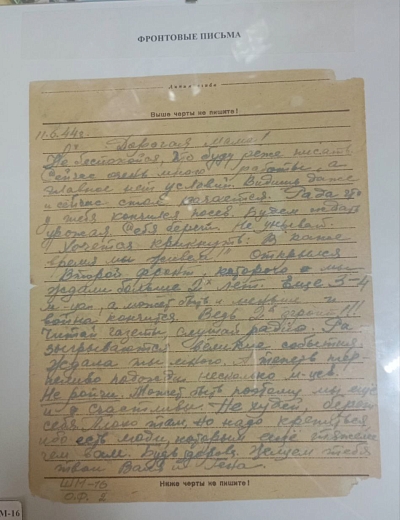 ФРОНТОВЫЕ ПИСЬМА
Линия сгиба
Выше черты не пишите!
11.6.44г.
Дорогая мама!
Не беспокойся, что буду реже писать
Сейчас очень много работы, а
главное нет условий. Видишь даже
и сейчас стол качается. Рада что
у тебя кончился посев. Будем ждать
урожая. Себя береги. Не унывай.
Хочется крикнуть: В какое
время мы живем! Открылся
Второй фронт, которого мы
ждали больше 2х лет. Еще 3-4
м-ца, а может быть и меньше и
война кончится. Ведь 2й фронт!!!
Читай газеты, слушай радио. Ра
зыгрываются великие события.
Ждала ты много. А теперь тер-
пеливо подожди несколько м-цев.
Не ропщи. Может быть поэтому мы ещё
и счастливы. Не худей, береги
себя. Плохо там но надо крепиться
ибо есть люди, которым ещё тяжелее
чем вам. Будь здорова. Целуем тебя
твои Валя и Лена.
Ниже черты не пишите!
ШМ-16
О.Ф. 2
М-16